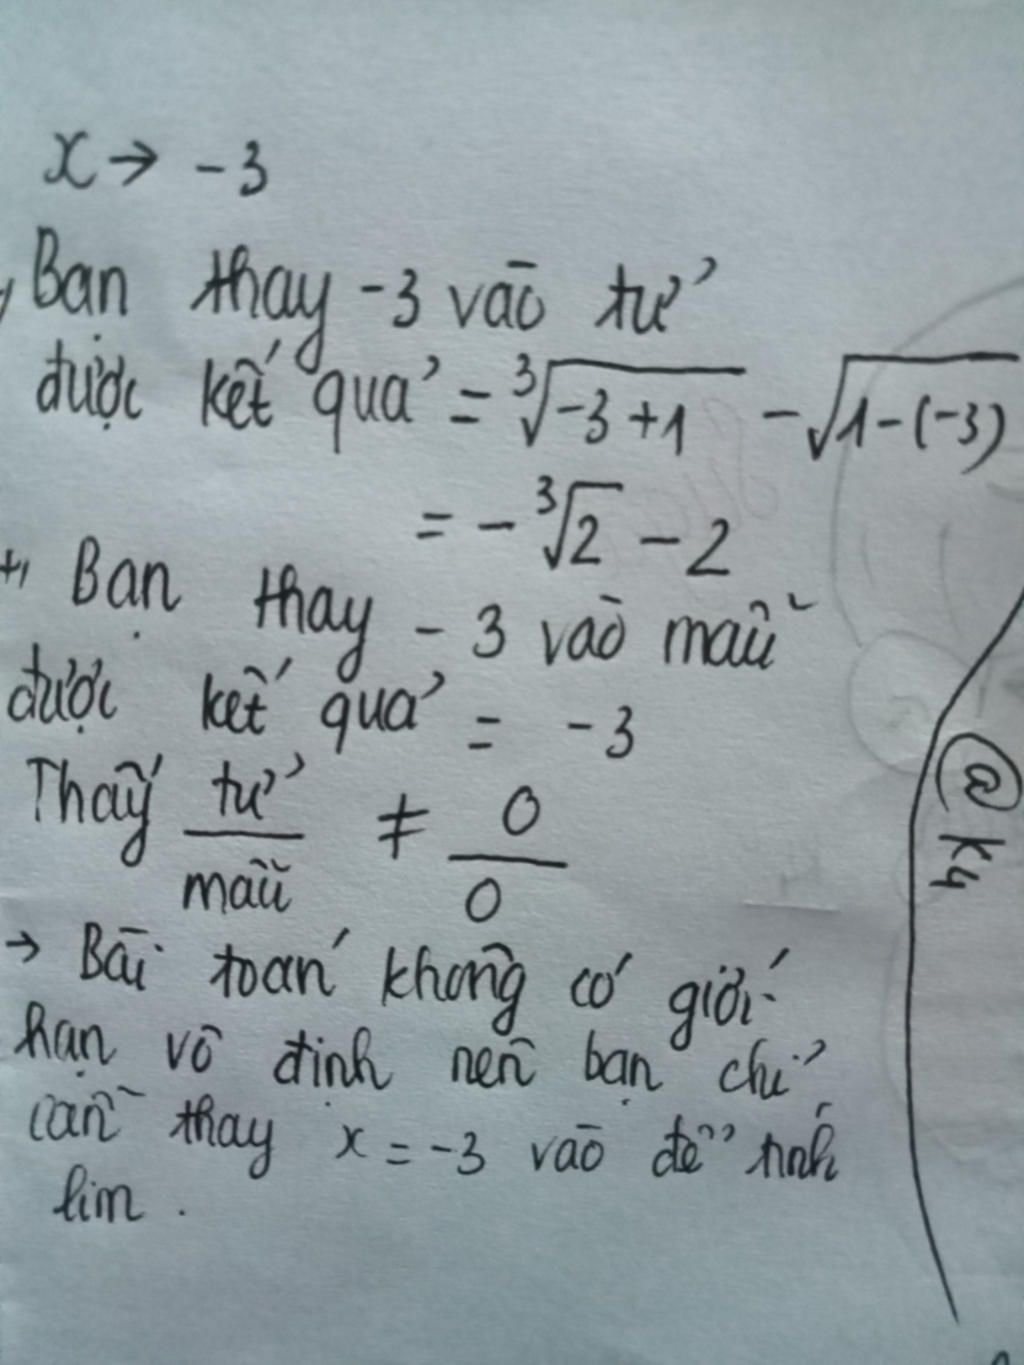 x → -3
Bạn thay -3 vào tử
được kết quả = ∛(-3+1) - √(1-(-3))
= - ∛2 - 2
+, Bạn thay - 3 vào mẫu
được kết quả = -3
Thấy tử/mẫu ≠ 0/0
→ Bài toán không có giới
hạn vô định nên bạn chỉ
cần thay x = -3 vào để tính
lim .
@ky